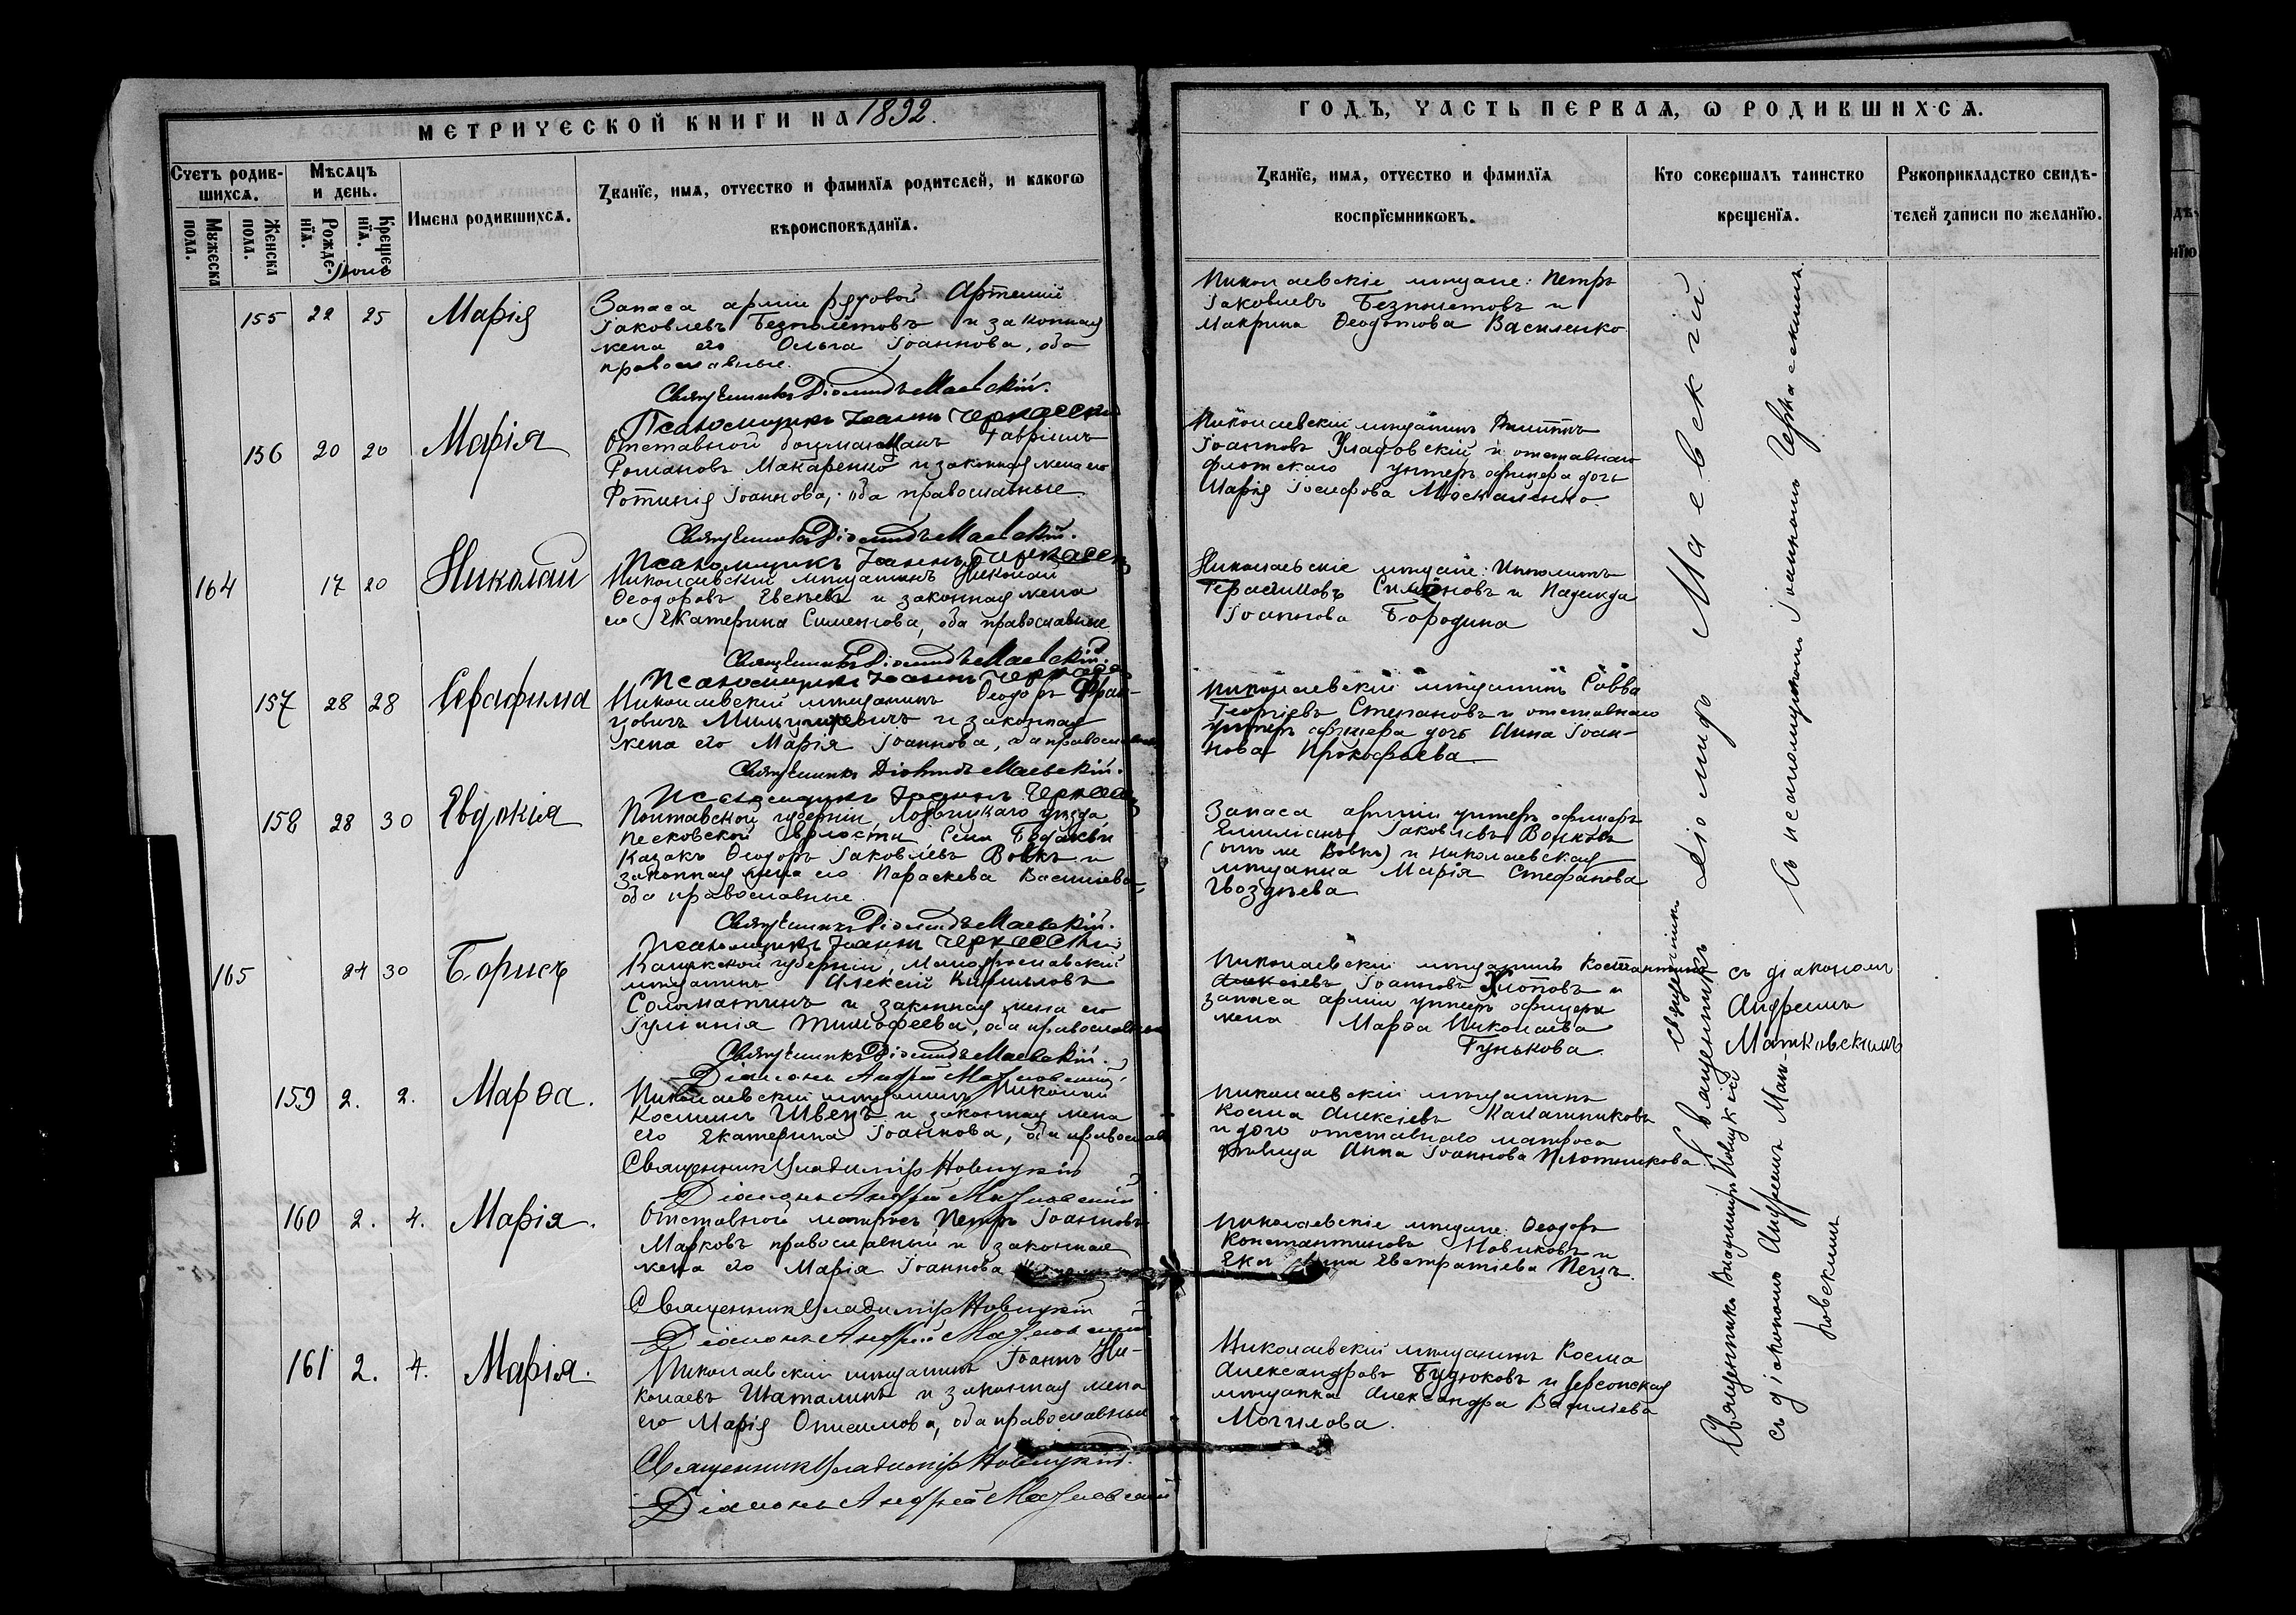 МЕТРИЧЕСКОЙ КНИГИ НА 1892.
Счетъ родив-
шихся.
Мѣсяцъ
и день.
Имена родившихся.
Званїе, имя, отчество и фамилїя родителей, и какогѡ
вѣроисповѣданїя.
Мужеска
пола.
Женска
пола.
Рожде-
нїя.
Креще-
нїя.
155 22 25 Марія
Запаса арміи рядовой Артемій
Іаковлевъ Безпалетовъ и законная
жена его Ольга Іоаннова, оба
православные.
Священникъ Діомидъ Маевскій.
Псаломщикъ Іоаннъ Черкасскі
156 20 20 Марія
Отставной боцманматъ Гавріилъ
Романовъ Макаренко и законная жена его
Фотинія Іоаннова, оба православные
Священникъ Діомидъ Маевскій.
Псаломщикъ Іоаннъ Черкасск
164 17 20 Николай
Николаевскій мѣщанинъ Николай
Ѳеодоровъ и законная жена
его Екатерина Симеонова, оба православные
Священникъ Діомидъ Маевскій.
Псаломщикъ Іоаннъ
157 28 28 Серафима
Николаевскій мѣщанинъ Ѳеодоръ
и законная
жена его Марія Іоаннова, оба православные
Священникъ Діомидъ Маевскій.
Псаломщикъ Іоаннъ
158 28 30 Евдокія
Полтавской губерніи, Лохвицкаго уѣзда
Песковской волости села
Казакъ Ѳеодоръ Іаковлевъ Вовкъ и
законная жена его Параскева Василіева
оба православные.
Священникъ Діомидъ Маевскій.
Псаломщикъ Іоаннъ Черкасскій
165 24 30 Борисъ
губерніи,
мѣщанинъ Алексій Кирилловъ
Соломатинъ и законная жена его
Іуліанія Тимоѳеева, оба православные
Священникъ Діомидъ Маевскій.
Діаконъ Андрей
159 2. 2. Марѳа.
Николаевскій мѣщанинъ Николай
Косминъ Швецъ и законная жена
его Екатерина Іоаннова, оба православ
Священникъ Владиміръ Новицкій
Діаконъ Андрей
160 2. 4. Марія.
Отставной матросъ Петръ Іоанновъ
Марковъ православный и законная
жена его Марія Іоаннова
Священникъ Владиміръ Новицкій
Діаконъ Андрей
161 2. 4. Марія.
Николаевскій мѣщанинъ Іоаннъ Ни-
колаевъ Шаталинъ и законная жена
его Марія Онисимова, оба православные
Священникъ Владиміръ Новицкій.
Діаконъ Андрей
ГОДЪ, ЧАСТЬ ПЕРВАЯ, Ѡ РОДИВШИХСЯ.
Званїе, имя, отчество и фамилїя
воспрїемникѡвъ.
Кто совершалъ таинство
крещенїя.
Рукоприкладство свидѣ-
телей записи по желанїю.
Николаевскіе мѣщане: Петръ
Іаковлевъ Безпалетовъ и
Макрина Ѳеодотова Василенко
Николаевскій мѣщанинъ
Іоанновъ Уладовскій и отставнаго
флотскаго унтеръ офицера дочь
Марія Іосифова Москаленко.
Николаевскіе мѣщане: Ипполитъ
Герасимовъ и Надежда
Іоаннова Бородина
Николаевскій мѣщанинъ Савва
Георгіевъ Степановъ и отставнаго
унтеръ офицера дочь Анна Іоан-
нова Прокофьева
Запаса арміи унтеръ офицеръ
Емиліанъ Іаковлевъ Волковъ
(онъ же Вовкъ) и николаевская
мѣщанка Марія Стефанова
Гвоздѣева
Николаевскій мѣщанинъ Константинъ
Іоанновъ и
запаса арміи унтеръ офицера
жена Марѳа Николаева
Гунькова.
Николаевскій мѣщанинъ
Косма Алексіевъ Калашниковъ
и дочь отставнаго матроса
дѣвица Анна Іоаннова Плотникова.
Николаевскіе мѣщане: Ѳеодоръ
Константиновъ Новиковъ и
Евстратіева Пецъ.
Николаевскій мѣщанинъ Косма
Александровъ Будюковъ и Херсонская
мѣщанка Александра Василіева
Могилова.
Священникъ Діомидъ Маевскій
Съ псаломщикомъ Іоанномъ Черкасскимъ.
Священникъ
съ діакономъ
Андреемъ
Матковскимъ
Священникъ Владиміръ Новицкій
съ діакономъ Андреемъ Мат-
ковскимъ